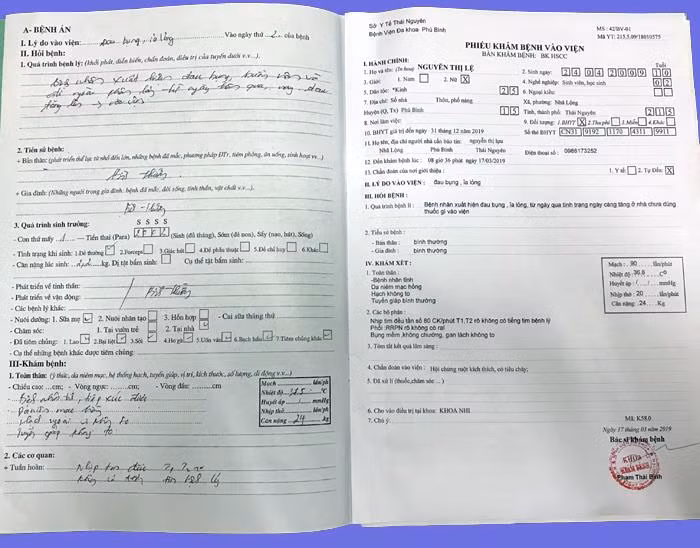 A- BỆNH ÁN
I. Lý do vào viện: đau bụng, ỉa lỏng Vào ngày thứ 2 của bệnh
II. Hỏi bệnh:
1. Quá trình bệnh lý: (khởi phát, diễn biến, chẩn đoán, điều trị của tuyến dưới v.v...).
Bệnh nhân xuất hiện đau bụng
2. Tiền sử bệnh:
+ Bản thân: (phát triển thể lực từ nhỏ đến lớn, những bệnh đã mắc, phương pháp ĐTr, tiêm phòng, ăn uống, sinh hoạt vv...)
Bình thường
+ Gia đình: (Những người trong gia đình: bệnh đã mắc, đời sống, tinh thần, vật chất v.v...).
Bình thường
3. Quá trình sinh trưởng:
S S S S
- Con thứ mấy 1 Tiền thai (Para) (Sinh (đủ tháng), Sớm (đẻ non), Sẩy (nạo, hút), Sống)
- Tình trạng khi sinh: 1.Đẻ thường 2.Forceps 3.Giác hút 4.Đẻ phẫu thuật 5.Đẻ chỉ huy 6.Khác
- Cân nặng lúc sinh: kg. Dị tật bẩm sinh: Cụ thể tật bẩm sinh:
- Phát triển về tinh thần:
- Phát triển về vận động: Bình thường
- Các bệnh lý khác:
- Nuôi dưỡng: 1. Sữa mẹ 2. Nuôi nhân tạo 3. Hỗn hợp - Cai sữa tháng thứ
- Chăm sóc: 1. Tại vườn trẻ 2. Tại nhà
- Đã tiêm chủng: 1. Lao 2.Bại liệt 3.Sởi 4.Ho gà 5.Uốn ván 6.Bạch hầu 7.Tiêm chủng khác
- Cụ thể những bệnh khác được tiêm chủng:
III-Khám bệnh:
1. Toàn thân: (ý thức, da niêm mạc, hệ thống hạch, tuyến giáp, vị trí, kích thước, số lượng, di động v.v...)
- Chiều cao: cm; - Vòng ngực: cm; - Vòng đầu: cm
Mạch lần/ph
Nhiệt độ °C
Huyết áp / mmHg
Nhịp thở lần/ph
Cân nặng 24 kg
Hạch ngoại vi không to
Tuyến giáp không to
2. Các cơ quan:
+ Tuần hoàn: Nhịp tim đều T1, T2 rõ
Sở Y Tế Thái Nguyên
Bệnh Viện Đa khoa Phú Bình
MS : 42/BV-01
Mã YT: 215.5.09/18010575
PHIẾU KHÁM BỆNH VÀO VIỆN
BÀN KHÁM BỆNH: BK HSCC
I. HÀNH CHÍNH:
1. Họ và tên: (In hoa) NGUYỄN THỊ LỆ
2. Sinh ngày: 24 04 2009 Tuổi 10
3. Giới: 1. Nam 2. Nữ X
4. Nghề nghiệp: Sinh viên, học sinh 02
5. Dân tộc: *Kinh 25
6. Ngoại kiều:
7. Địa chỉ: Số nhà Thôn, phố nàng Xã, phường: Nhã Lộng
Huyện (Q, Tx) Phú Bình 15 Tỉnh, thành phố: Thái Nguyên 215
8. Nơi làm việc:
9. Đối tượng: 1.BHYT X 2.Thu phí 3.Miễn 4.Khác
10. BHYT giá trị đến ngày 31 tháng 12 năm 2019 Số thẻ BHYT CN31 9192 1170 4311 9911
11. Họ tên, địa chỉ người nhà cần báo tin: nguyễn thị lựu
Nhã Lộng Phú Bình Thái Nguyên Điện thoại số : 0966173252
12. Đến khám bệnh lúc : 08 giờ 36 phút ngày 17/03/2019
13. Chẩn đoán của nơi giới thiệu : 1. Y tế 2. Tự Đến: X
II. LÝ DO VÀO VIỆN : đau bụng , ỉa lỏng
III. HỎI BỆNH :
1. Quá trình bệnh lí : Bệnh nhân xuất hiện đau bụng , ỉa lỏng, từ ngày qua tình trạng ngày càng tăng ở nhà chưa dùng
thuốc gì vào viện
2. Tiền sử bệnh :
- Bản thân : bình thường
- Gia đình : bình thường
IV. KHÁM XÉT :
1. Toàn thân :
-Bệnh nhân tỉnh
Da niêm mạc hồng
Hạch không to
Tuyến giáp bình thường
Mạch : 80 lần/phút
Nhiệt độ 36.8 C°
Huyết áp : / mmHg
Nhịp thở : 20 lần/phút
Cân nặng : 24 Kg
2. Các bộ phận :
Nhịp tim đều tần số 80 CK/phút T1,T2 rõ không có tiếng tim bệnh lý
Phổi :RRPN rõ không có ral
Bụng mềm ,không chướng, gan lách không to
3. Tóm tắt kết quả lâm sàng :
4. Chẩn đoán vào viện : Hội chứng ruột kích thích, có tiêu chảy;
5. Đã xử lí (thuốc,chăm sóc ... )
6. Cho vào điều trị tại khoa: KHOA NHI
7. Chú ý:
Mã: K58.0
Ngày 17 tháng 03 năm 2019
Bác sĩ khám bệnh
KHOA
KHÁM BỆNH
Phạm Thái Bình